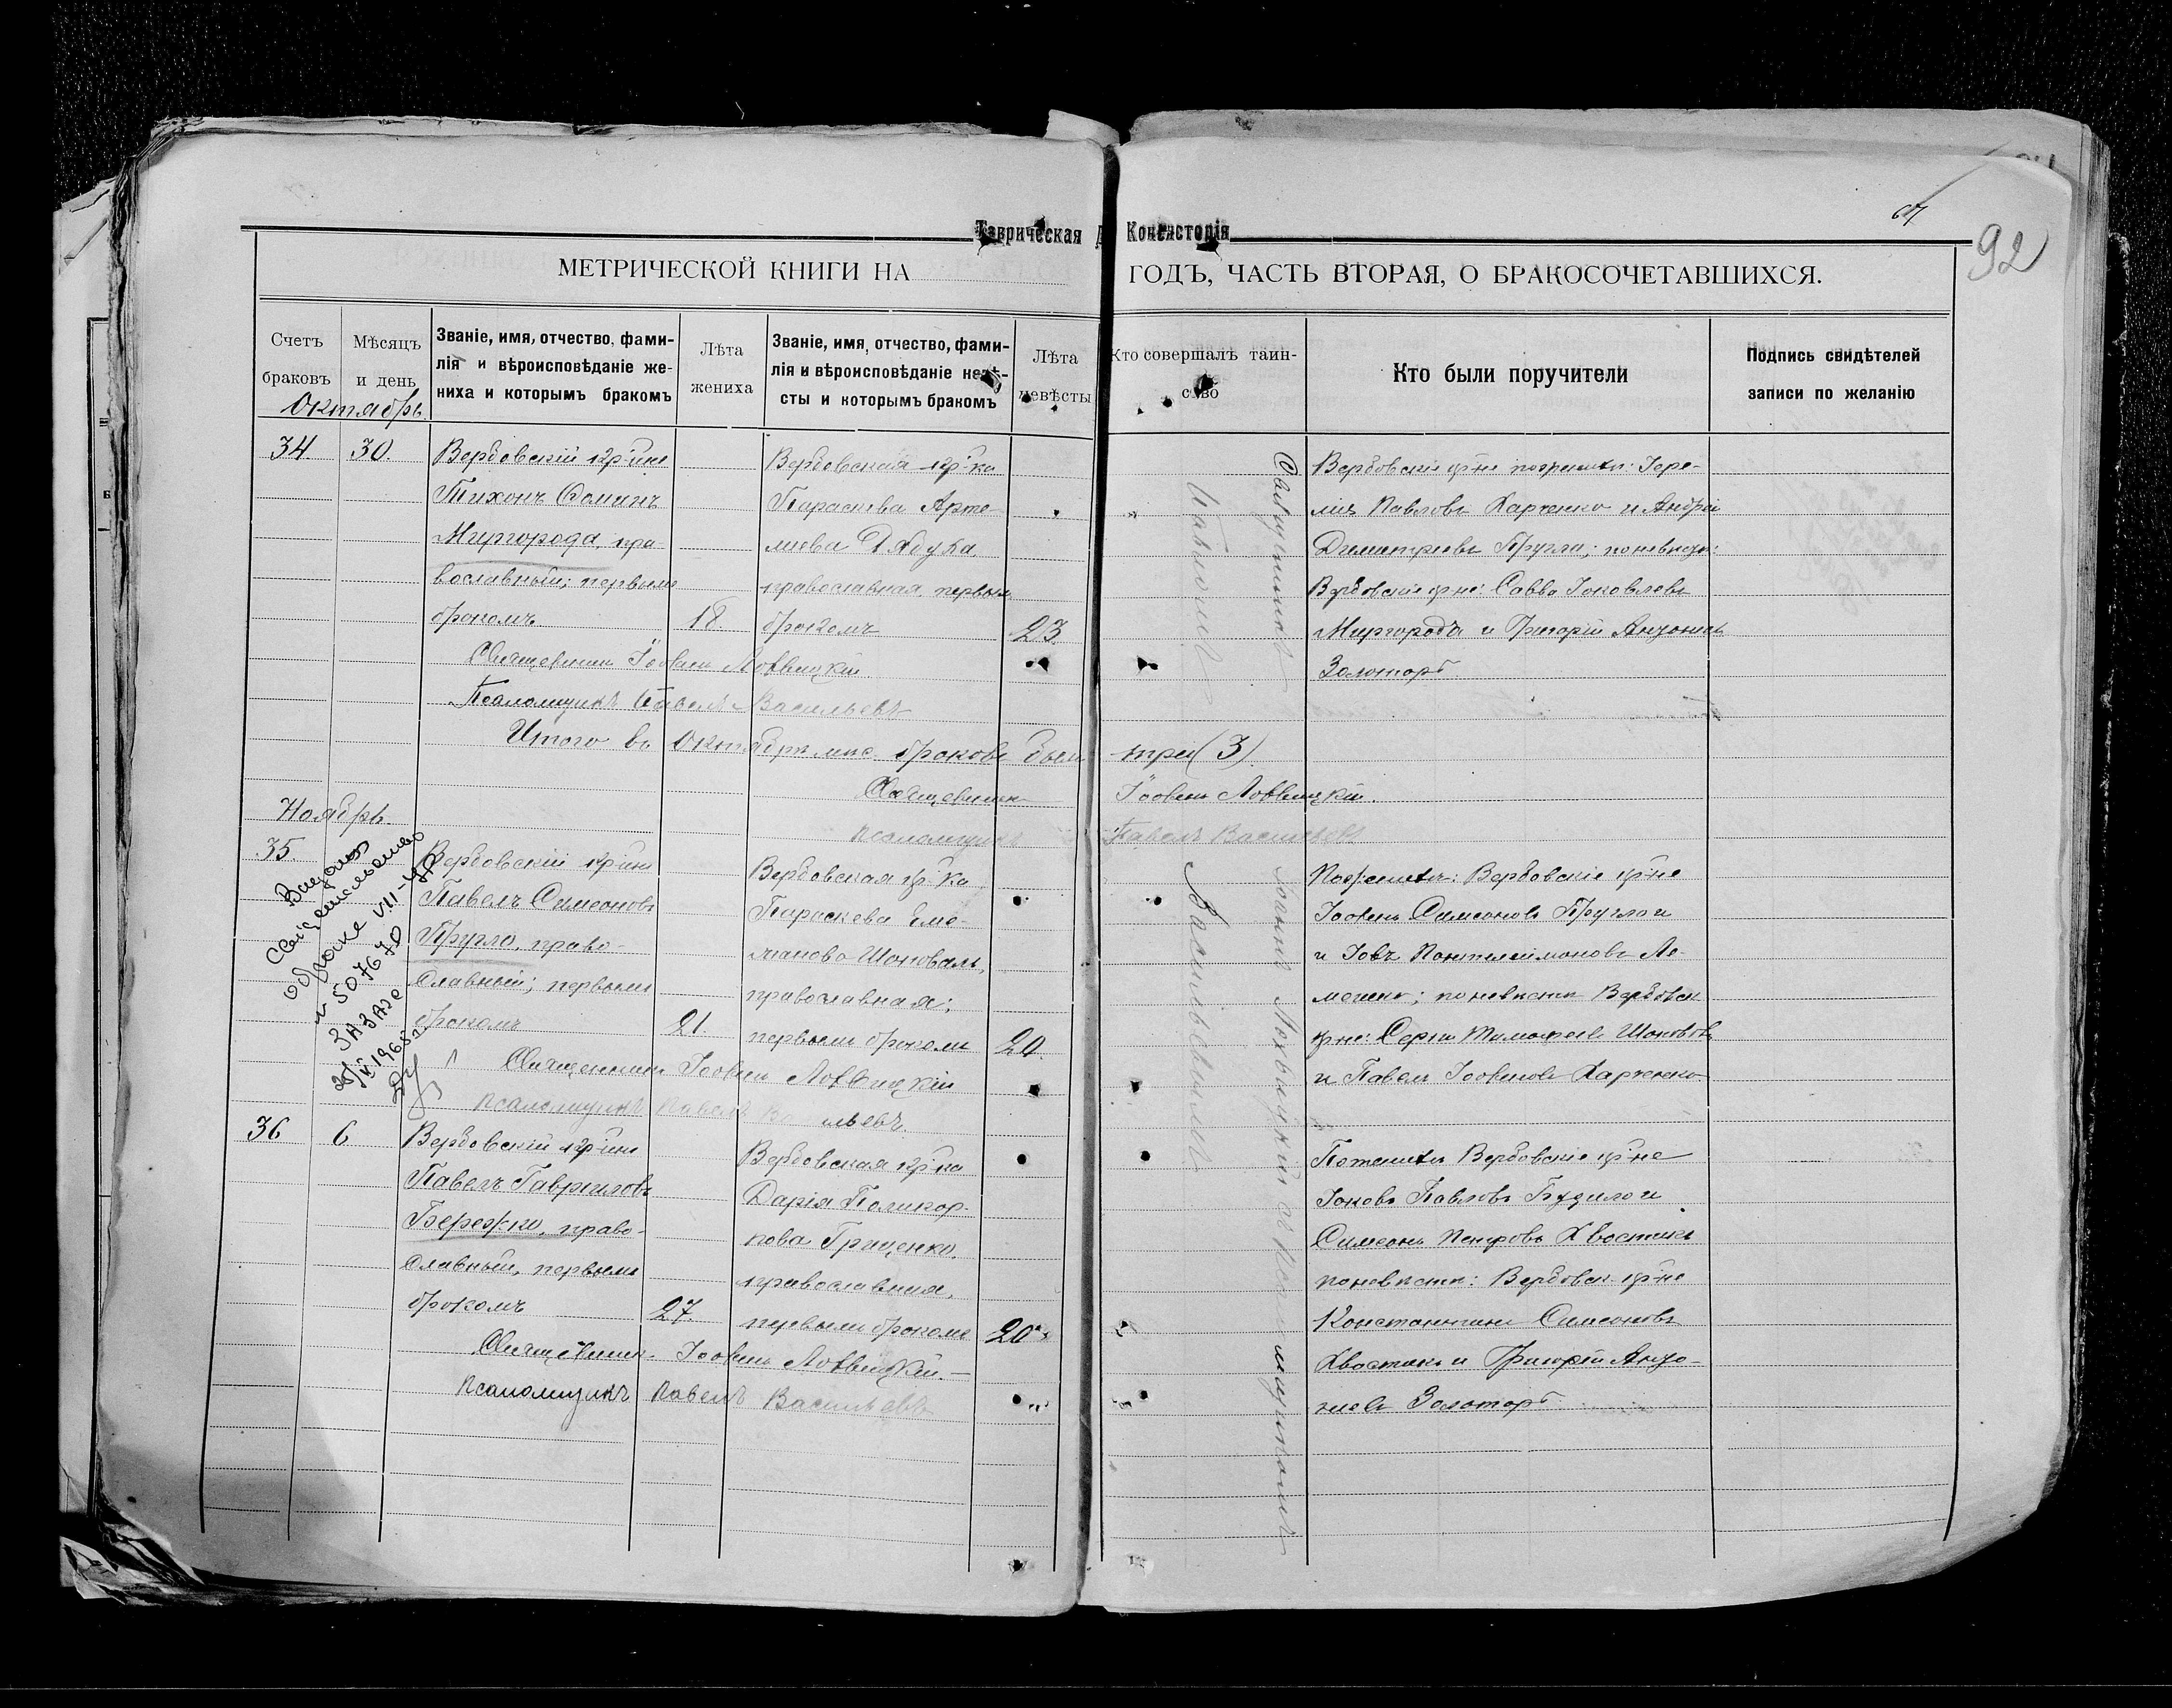 67
92
Таврическая Д. Консисторія
МЕТРИЧЕСКОЙ КНИГИ НА ГОДЪ, ЧАСТЬ ВТОРАЯ, О БРАКОСОЧЕТАВШИХСЯ.
Счетъ браковъ
Мѣсяцъ и день
Званіе, имя, отчество, фами-
лія и вѣроисповѣданіе же-
ниха и которымъ бракомъ
Лѣта жениха
Званіе, имя, отчество, фами-
лія и вѣроисповѣданіе невѣ-
сты и которымъ бракомъ
Лѣта невѣсты
Кто совершалъ таин-
ство
Кто были поручители
Подпись свидѣтелей
записи по желанію
Октябрь.
34. 30.
Вербовскій кр-инъ
Тихонъ Ѳоминъ
Миргорода, пра-
вославный; первымъ
бракомъ
18.
Вербовская кр-ка
Параскева Арте-
миева
православная, первым
бракомъ
23.
Вербовскіе кр-не по женихѣ: Іере-
мія Павловъ Харченко и Андрей
Димитріевъ Пругло; по невѣстѣ:
Вербовскіе кр-не: Савва Іаковлевъ
Миргородъ и Григорій Антоніевъ
Золотарь
Священникъ Іоаннъ Лохвицкій
Псаломщикъ Павелъ Васильевъ
Итого въ Октябрѣ мцѣ браковъ было три (3).
Священникъ Іоаннъ Лохвицкій.
Псаломщикъ Павелъ Васильевъ
Ноябрь.
35.
Выдано
свидетельство
о браке VII-ЯР
№ 507670
ЗАГАС
1968 г.
Вербовскій кр-инъ
Павелъ Симеоновъ
Пругло, право-
славный; первымъ
бракомъ
21.
Вербовская кр-ка
Параскева Еме-
ліанова Шаповалъ,
православная;
первымъ бракомъ
20.
По женихѣ: Вербовскіе кр-не
Іоаннъ Симеоновъ Пругло и
и Іовъ Пантелеимоновъ Ло-
; по невѣстѣ Вербовск.
кр-не: Сергій Тимофеевъ Шаповалъ
и Павелъ Іоанновъ Харченко
Священникъ Іоаннъ Лохвицкій
Псаломщикъ Павелъ Васильевъ.
36 6
Вербовскій кр-инъ
Павелъ Гавриловъ
Бережко, право-
славный, первымъ
бракомъ
27.
Вербовская кр-ка
Дарія Поликар-
пова Гриценко
православная,
первымъ бракомъ
20
По женихѣ Вербовскіе кр-не
Іаковъ Павловъ Будило и
Симеонъ Петровъ Хвостикъ
по невѣстѣ: Вербовск. кр-не
Константинъ Симеоновъ
Хвостикъ и Григорій Анто-
ніевъ Золотарь
Священникъ Іоаннъ Лохвицкій.
Псаломщикъ Павелъ Васильевъ
Священникъ Іоаннъ Лохвицкій и псаломщикомъ
Павломъ Васильевымъ